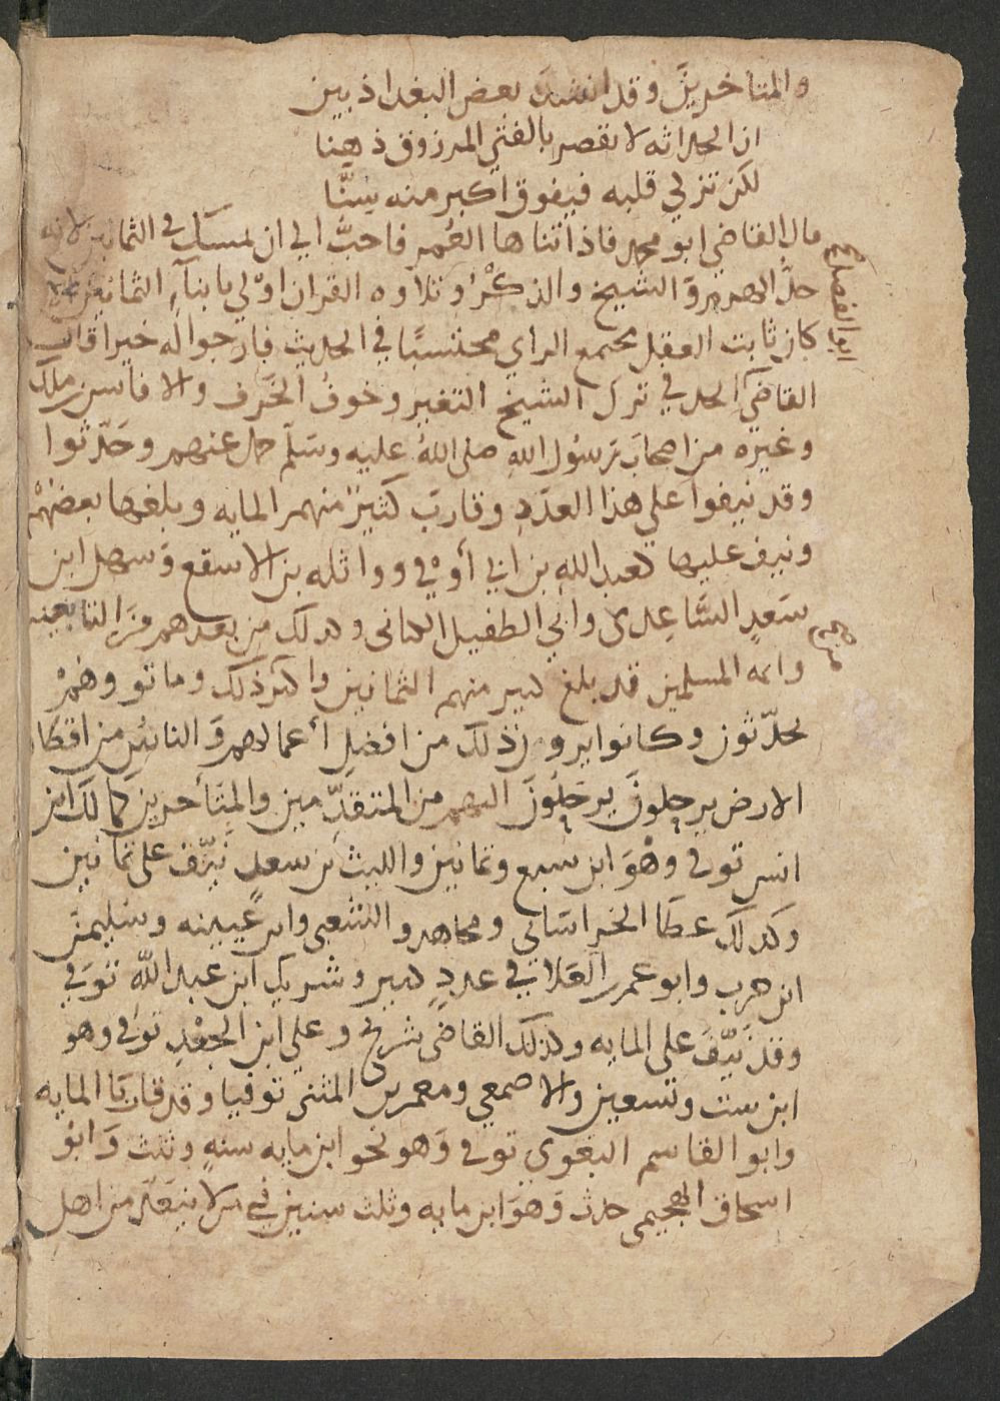 والمتاخرين وقد انشد بعض البغداذيين
ان الحداثه لا تقصر بالفتي المرزوق ذهنا
لكن تزلي قلبه فيفوق اكبر منه سِنّا
قال القاضي ابو محمد فاذا تناها العُمر فاحبّ الي ان يمسك في الثمانين لانه
حدّ الهرم وَالتسبيح والذكرُ وتلاوه القران اوْلي بابنآءِ الثمانين فان
كان ثابت العقل مجتمع الراي محتسبًا في الحديث فارجوا له خيرا قال
القاضي الحد في ترك الشيخ التغير وخوفُ الخَرف والا فانس بن ملك
وغيره من اصحاب رَسُول الله صلى اللهُ عليه وسَلم حمل عنهم وحَدّثوا
وقد نيفوا علي هذا العَدَدِ وقارب كثيرٌ منهم المايه وبلغها بعضهُمْ
ونيف عليها كعبد اللهِ بن ابي أوْفي وواثله بن الاسقع وَسهل ابن
سَعدٍ السَّاعِدى وابي الطفيل الكنانى وكذلك من بعدهم مِنَ التابعين
وايمه المسلمين قد بلغ كثير منهم الثمانين واكثر ذلك وماتو وهُمْ
يحدّثون وكانوا يرون ذلك من افضلِ أعمالهم وَالناسُ من اقطار
الارض يرحلونَ يرحَلُونَ اليهم من المتقدّمين والمتأخرين كمالك ابن
انس توفي وهْوَ ابن سبع وثمانين والليث بن سعدٍ نيّف على ثمانين
وكذلك عطا الخراسَاني ومجاهد والشعبي وابن عُيينه وسُليمن
ابن حرب وابو عمر العَلا في عددٍ كثير وشريك ابن عبد اللّه توفي
وقد نَيّفَ على المايه وكذلك القاضى شريح وعلي ابن الجعْدِ توفي وهو
ابن ست وتسعين والاصمعي ومعمر بن المثنى توفيا وقد قاربَا المايه
وابو القاسم البَغوي توفى وَهو نحو ابن مايه سنهٍ وثلث وَابُو
اسحاق الهجيمى حدث وَهوَ ابن مايه وثلث سنين في من لا ينعَدّ من اهلِ